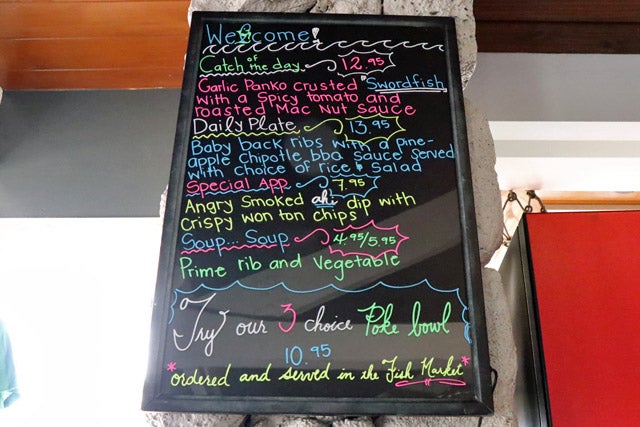 Welcome!
Catch of the day 12.95
Garlic Panko crusted Swordfish
with a spicy tomato and
roasted Mac Nut Sauce
Daily Plate 13.95
Baby back ribs with a pine-
apple Chipotle bbq sauce served
with choice of rice & Salad
Special App 7.95
Angry Smoked ahi dip with
crispy won ton chips!
Soup... Soup 4.95/5.95
Prime rib and Vegetable
Try our 3 choice Poke bowl
10.95
*ordered and served in the Fish Market*